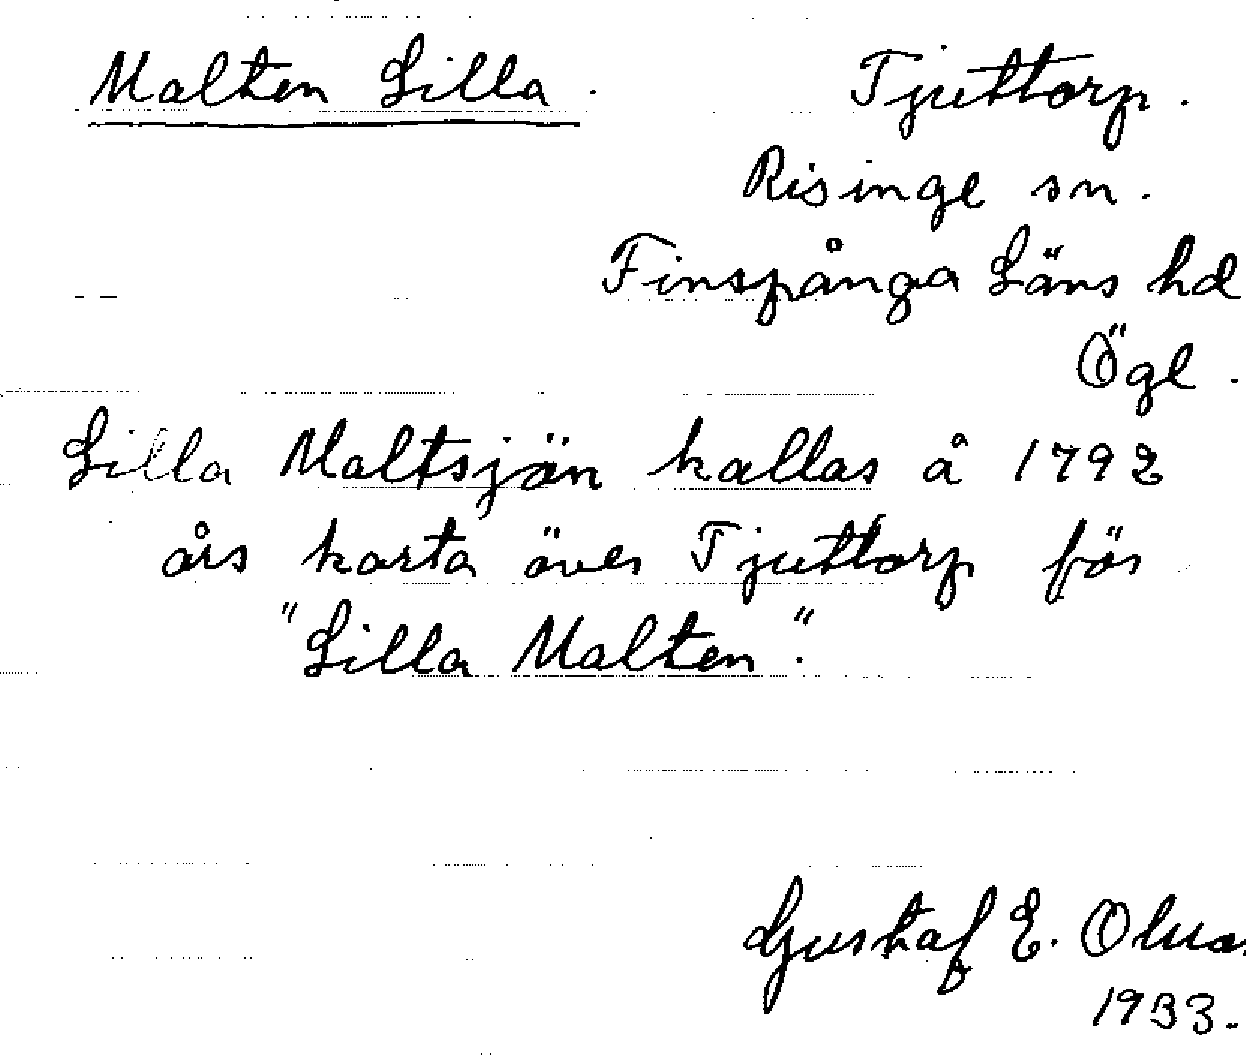 Malten Lilla. Tjuttorp.
Risinge sn.
Finspånga Läns hd
Ögl.
Lilla Maltsjön kallas å 1792
års karta över Tjuttorp för
"Lilla Malten".
Gustaf E.
1933.